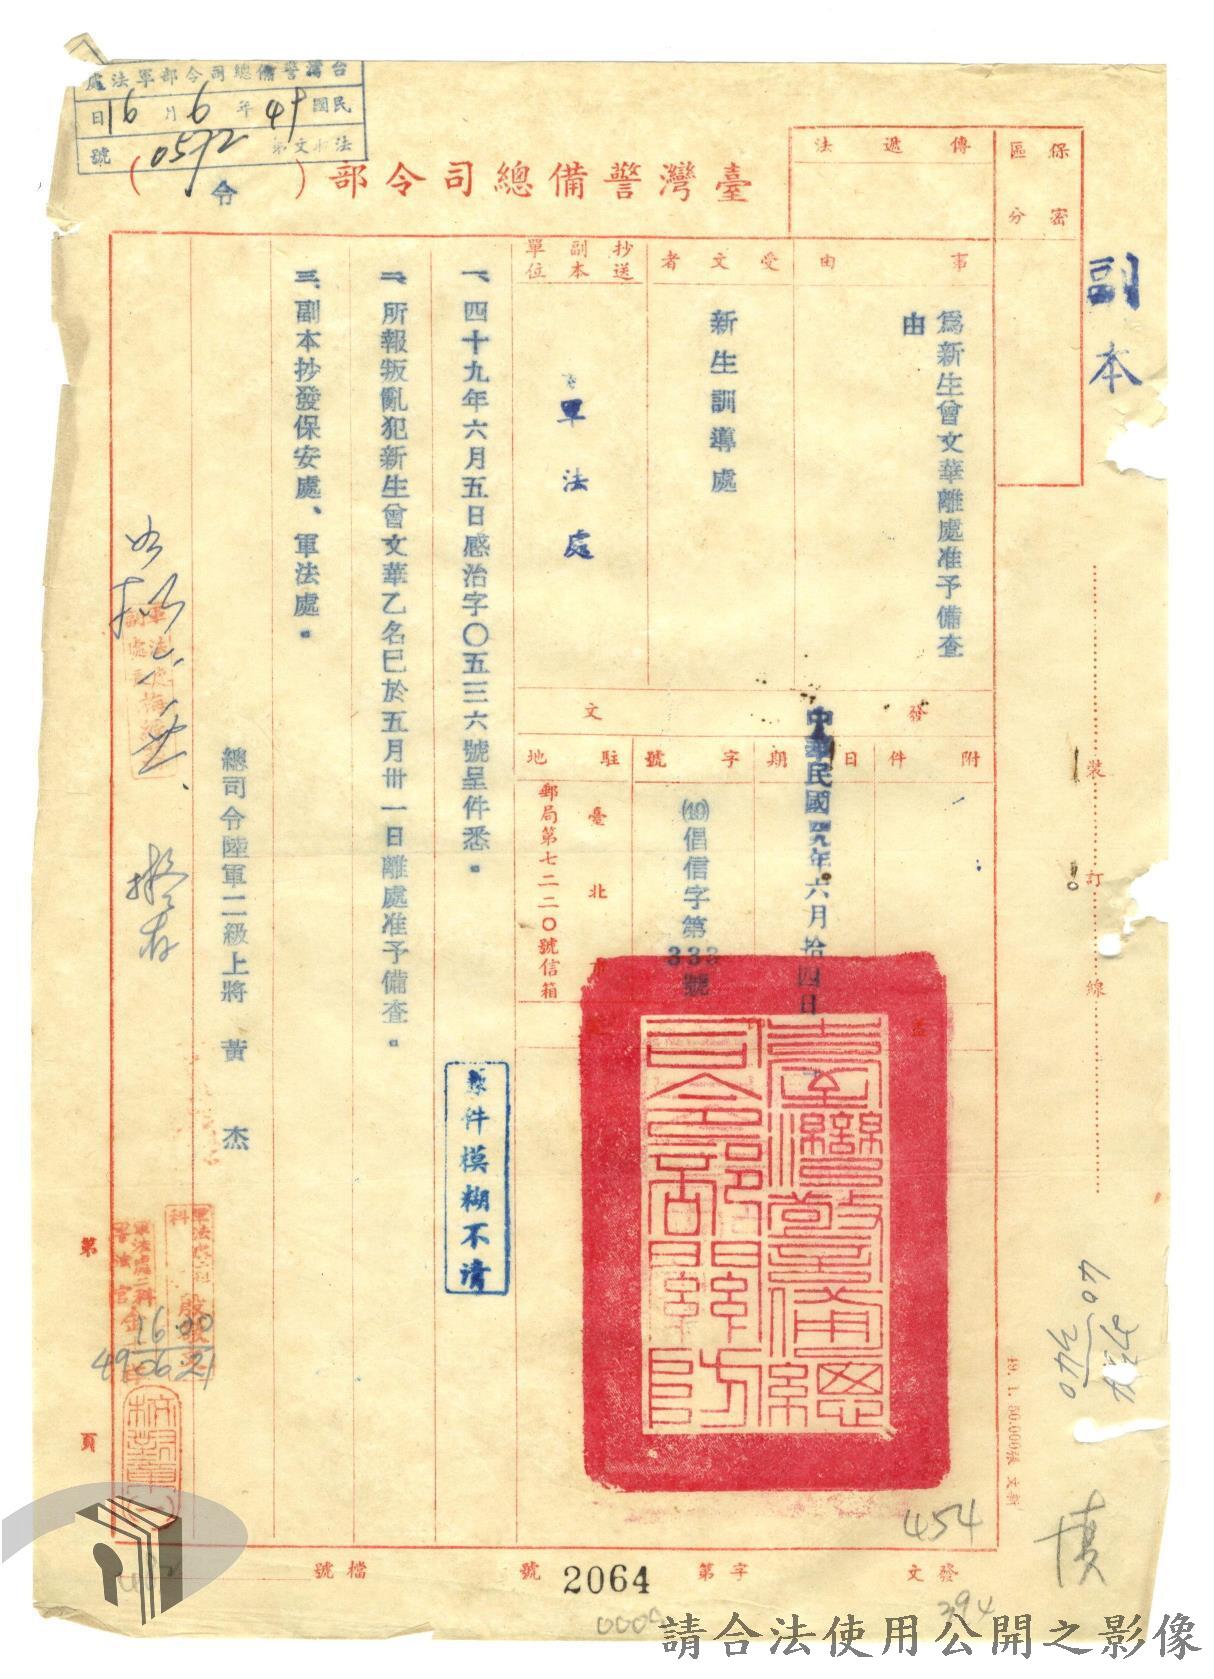 台灣警備總司令部軍法處
民國49年6月16日
法 文第0592號
臺灣警備總司令部（令）
傳遞法
保密區分
副本
事由
爲新生曾文華離處准予備查由
受文者
新生訓導處
抄送副本單位
軍法處
發文
附件
日期
中華民國四九年六月拾四日
字號
(49)倡信字第333號
駐地
臺北市
郵局第七二二〇號信箱
一、四十九年六月五日感治字〇五三六號呈件悉。
二、所報叛亂犯新生曾文華乙名已於五月卅一日離處准予備查。
三、副本抄發保安處、軍法處。
總司令陸軍二級上將 黃杰
原件模糊不清
臺灣警備總司令部關防
裝訂線
第 頁
1600
49.06.21
49.1.50.000張
454
發文 字第 2064 號
檔號
394
0005
請合法使用公開之影像